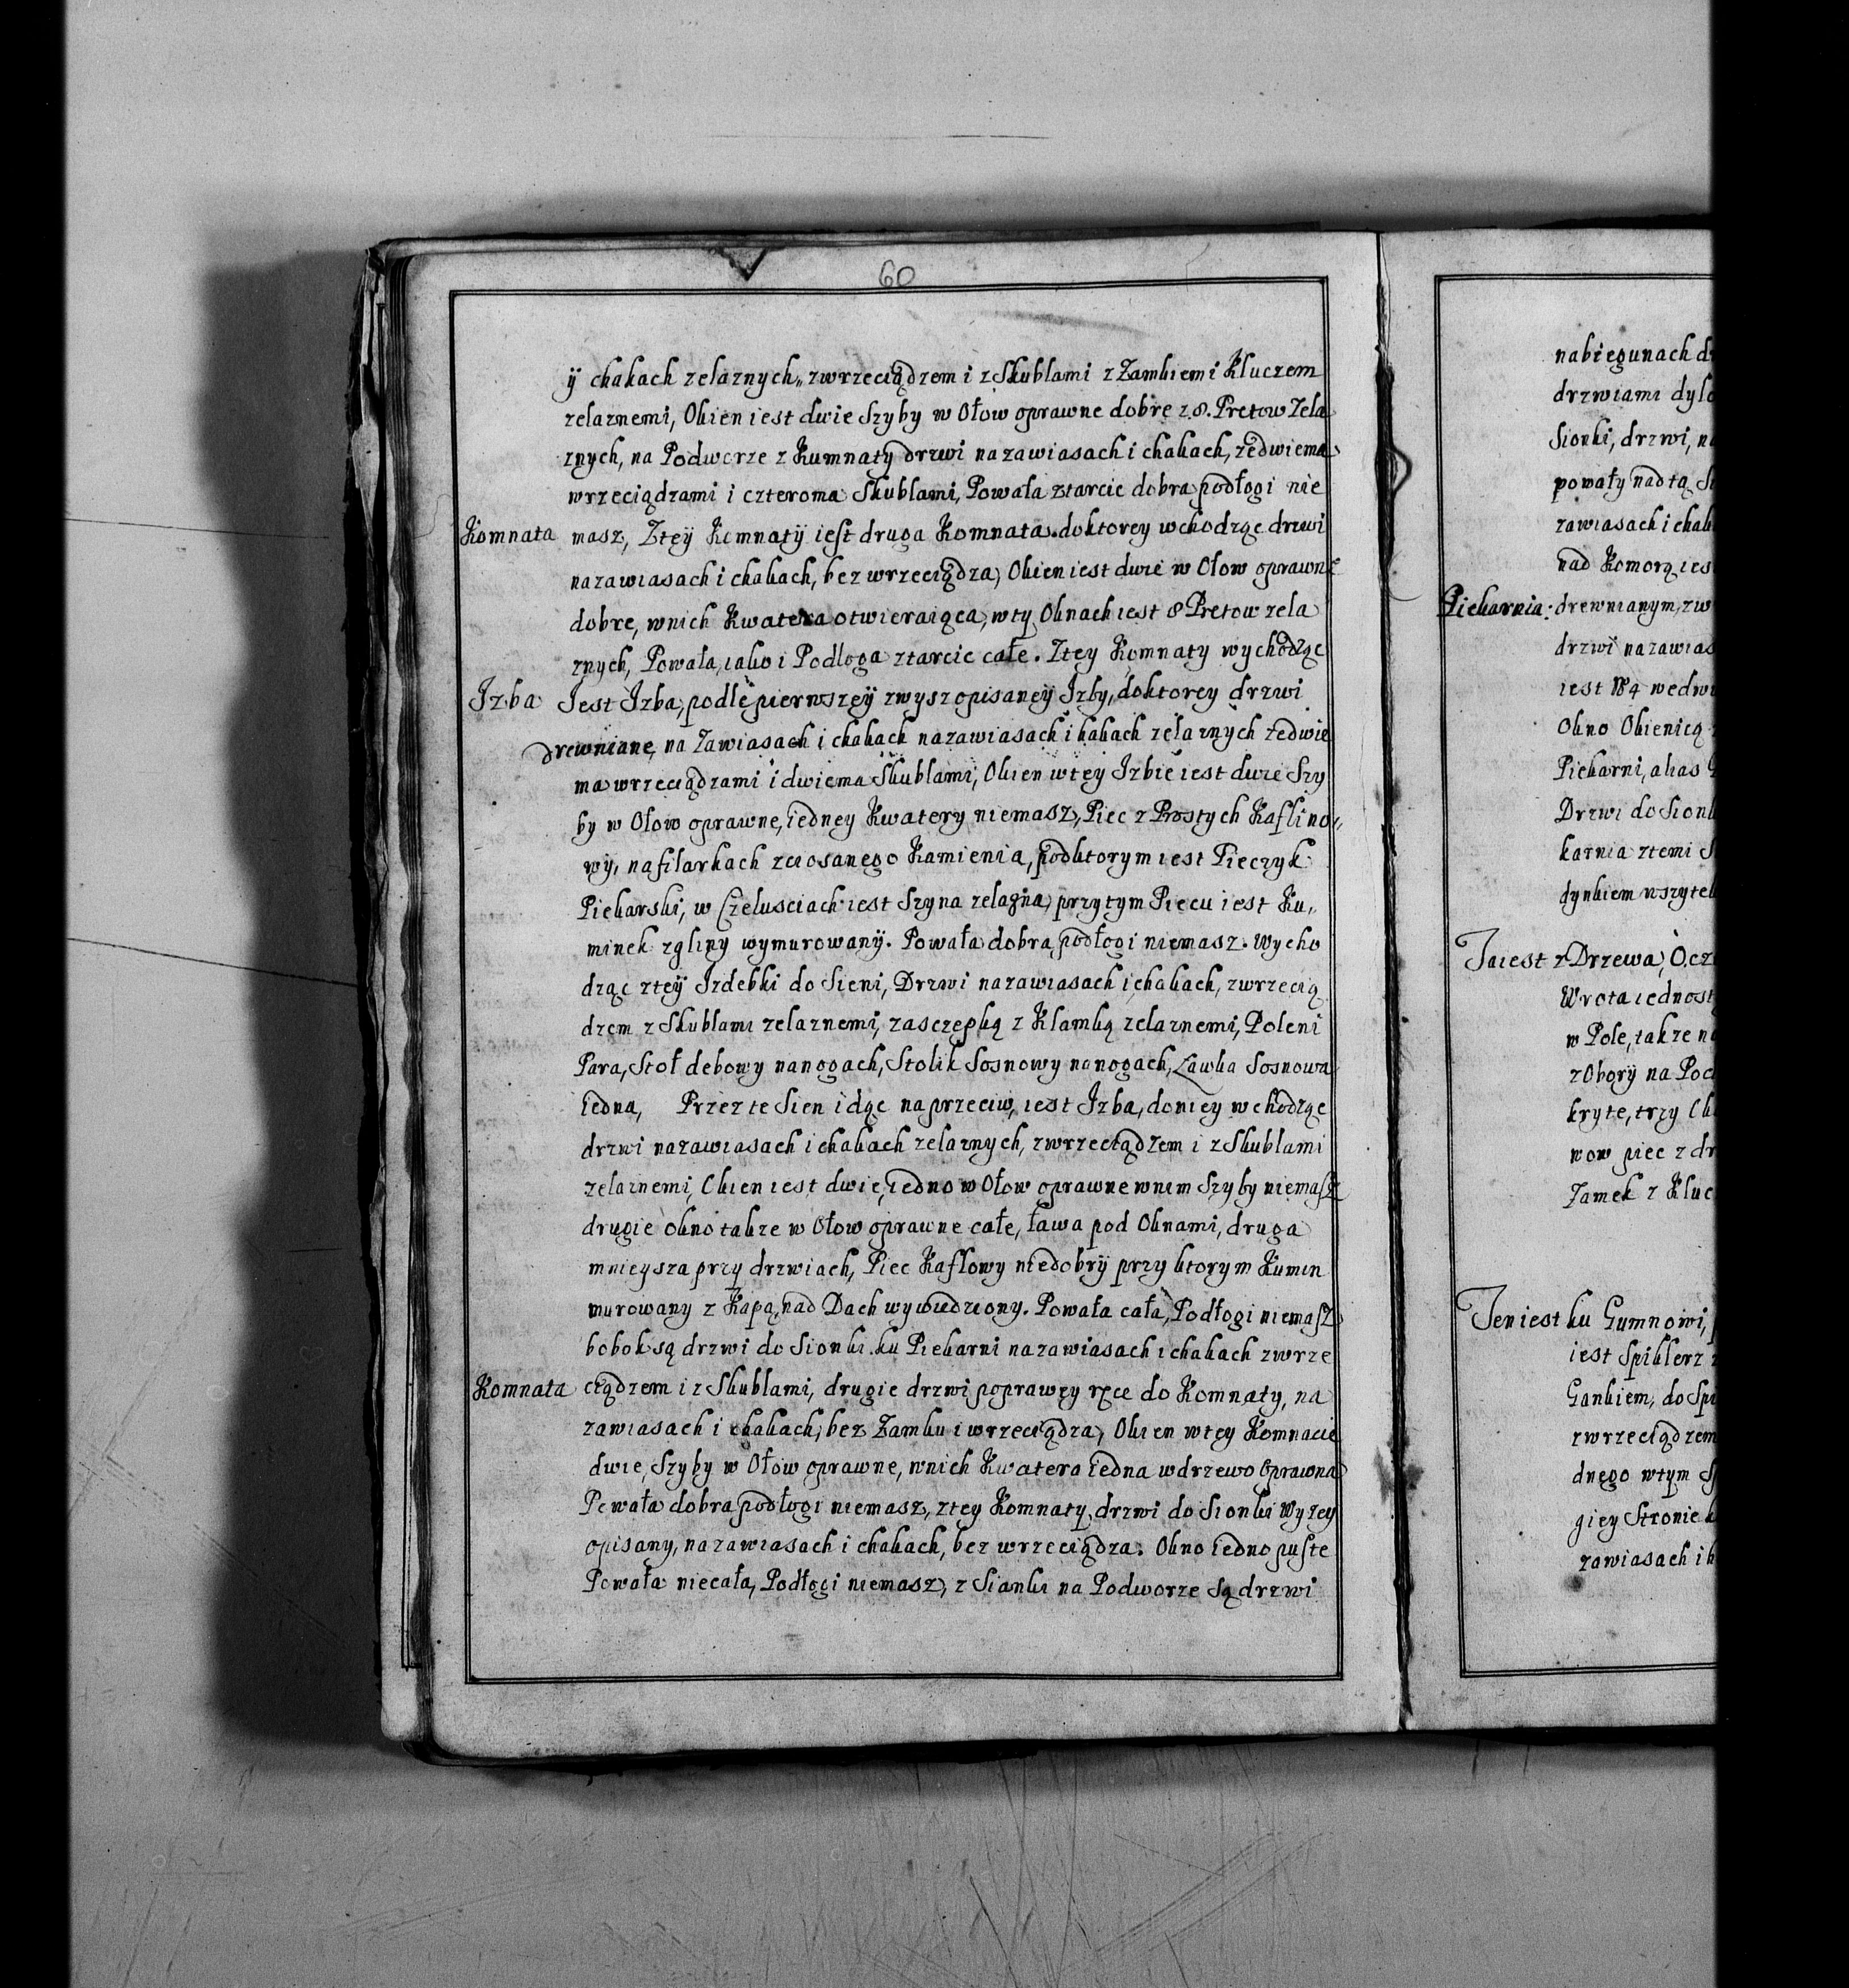 60
ÿ chakach zelaznych„ zwrzeciądzem i z Skublami z Zamkiem i Kluczem
zelaznemi, Okien iest dwie Szyby w Ołow oprawne dobre z 8. Pretow Zela
znych, na Podworze z Kumnaty drzwi na zawiasach i chakach, ze dwiema
wrzeciądzami i czteroma Skublami, Powała z tarcic dobra podłogi nie
Komnata masz, Z teÿ Komnatÿ iest druga Komnata. do ktorey wchodząc drzwi
na zawiasach i chakach, bez wrzeciądza, Okien iest dwie w Ołow oprawne
dobre, w nich Kwatera otwieraiąca, w ty Oknach iest 8 Pretow zela
znych, Powała, iako i Podloga z tarcic całe. Z tey Komnaty wychodząc
Izba Jest Izba, podle pierwszeÿ zwysz opisaneÿ Izby, do ktorey drzwi
drewniane, na Zawiasach i chakach na zawiasach i hakach zelaznych ze dwie
ma wrzeciądzami i dwiema Skublami, Okien w tey Izbie iest dwie Szy
by w Ołow oprawne, iedney Kwatery niemasz, Piec z Prostych Kaflino„
wy, na filarkach z ciosanego Kamienia, pod ktorym iest Pieczyk
Piekarski, w Czelusciach iest Szyna zelazna, przy tym Piecu iest Ku„
minek z gliny wymurowanÿ. Powała dobra, podłogi niemasz. Wycho
dząc z teÿ Izdebki do Sieni, Drzwi na zawiasach i chakach, z wrzecią
dzem z Skublami zelaznemi, zasczepką z Klamką zelaznemi, Poleni
Para, Stoł debowy na nogach, Stolik Sosnowy na nogach, Ławka Sosnowa
iedna, Przez te Sien idąc naprzeciw, iest Izba, do niey wchodząc
drzwi na zawiasach i chakach zelaznych, z wrzeciądzem i z Skublami
zelaznemi, Okien iest dwie, iedno w Ołow oprawne w nim Szyby niemasz
drugie okno takze w Ołow oprawne całe, ława pod Oknami, druga
mnieysza przy drzwiach, Piec Kaflowy niedobrÿ przy ktorym Kumin
murowany z Kapą, nad Dach wywiedziony. Powała cała, Podłogi niemasz
bobok są drzwi do Sionki ku Piekarni na zawiasach i chakach z wrze
Komnata ciądzem i z Skublami, drugie drzwi po prawey ręce do Komnaty, na
zawiasach i chakach, bez Zamku i wrzeciądza, Okien w tey Komnacie
dwie, Szyby w Ołow oprawne, w nich Kwatera iedna w drzewo Oprawna
Powała dobra podłogi niemasz, z tey Komnaty, drzwi do Sionki Wyzey
opisany, na zawiasach i chakach, bez wrzeciądza. Okno iedno puste
Powała niecała, Podłogi niemasz, z Sianki na Podworze są drzwi
na biegunach
drzwiami
Sionki, drzwi,
powały nad tą
zawiasach i
nad Komorą
Piekarnia: drewnianym,
drzwi na
iest
Okno Okienicą
Piekarni, alias
Drzwi do
karnia z temi
dynkiem
Ta iest z Drzewa,
Wrota
w Pole, takze
z Oborÿ na
kryte, trzy
wow piec z
Zamek z
Ten iest ku Gumnowi,
iest Spiklerz
Gankiem, do
z wrzeciądzem
dnego w tym
giey Stronie
zawiasach i